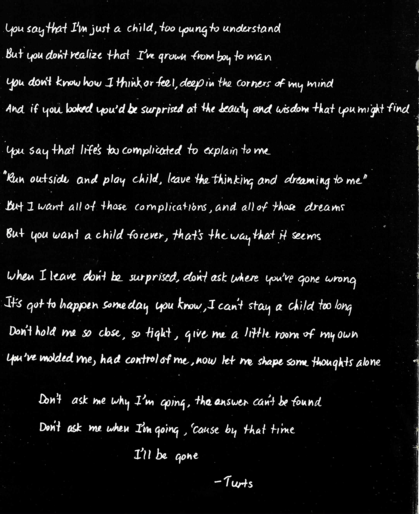 You say that I'm just a child, too young to understand
But you don't realize that I've grown from boy to man
You don't know how I think or feel, deep in the corners of my mind
And if you looked you'd be surprised at the beauty and wisdom that you might find
You say that life's too complicated to explain to me
"Run outside and play child, leave the thinking and dreaming to me"
But I want all of those complications, and all of those dreams
But you want a child forever, that's the way that it seems
When I leave don't be surprised, don't ask where you've gone wrong
It's got to happen someday you know, I can't stay a child too long
Don't hold me so close, so tight, give me a little room of my own
You've molded me, had control of me, now let me shape some thoughts alone
Don't ask me why I'm going, the answer can't be found
Don't ask me when I'm going, 'cause by that time
I'll be gone
-Turts